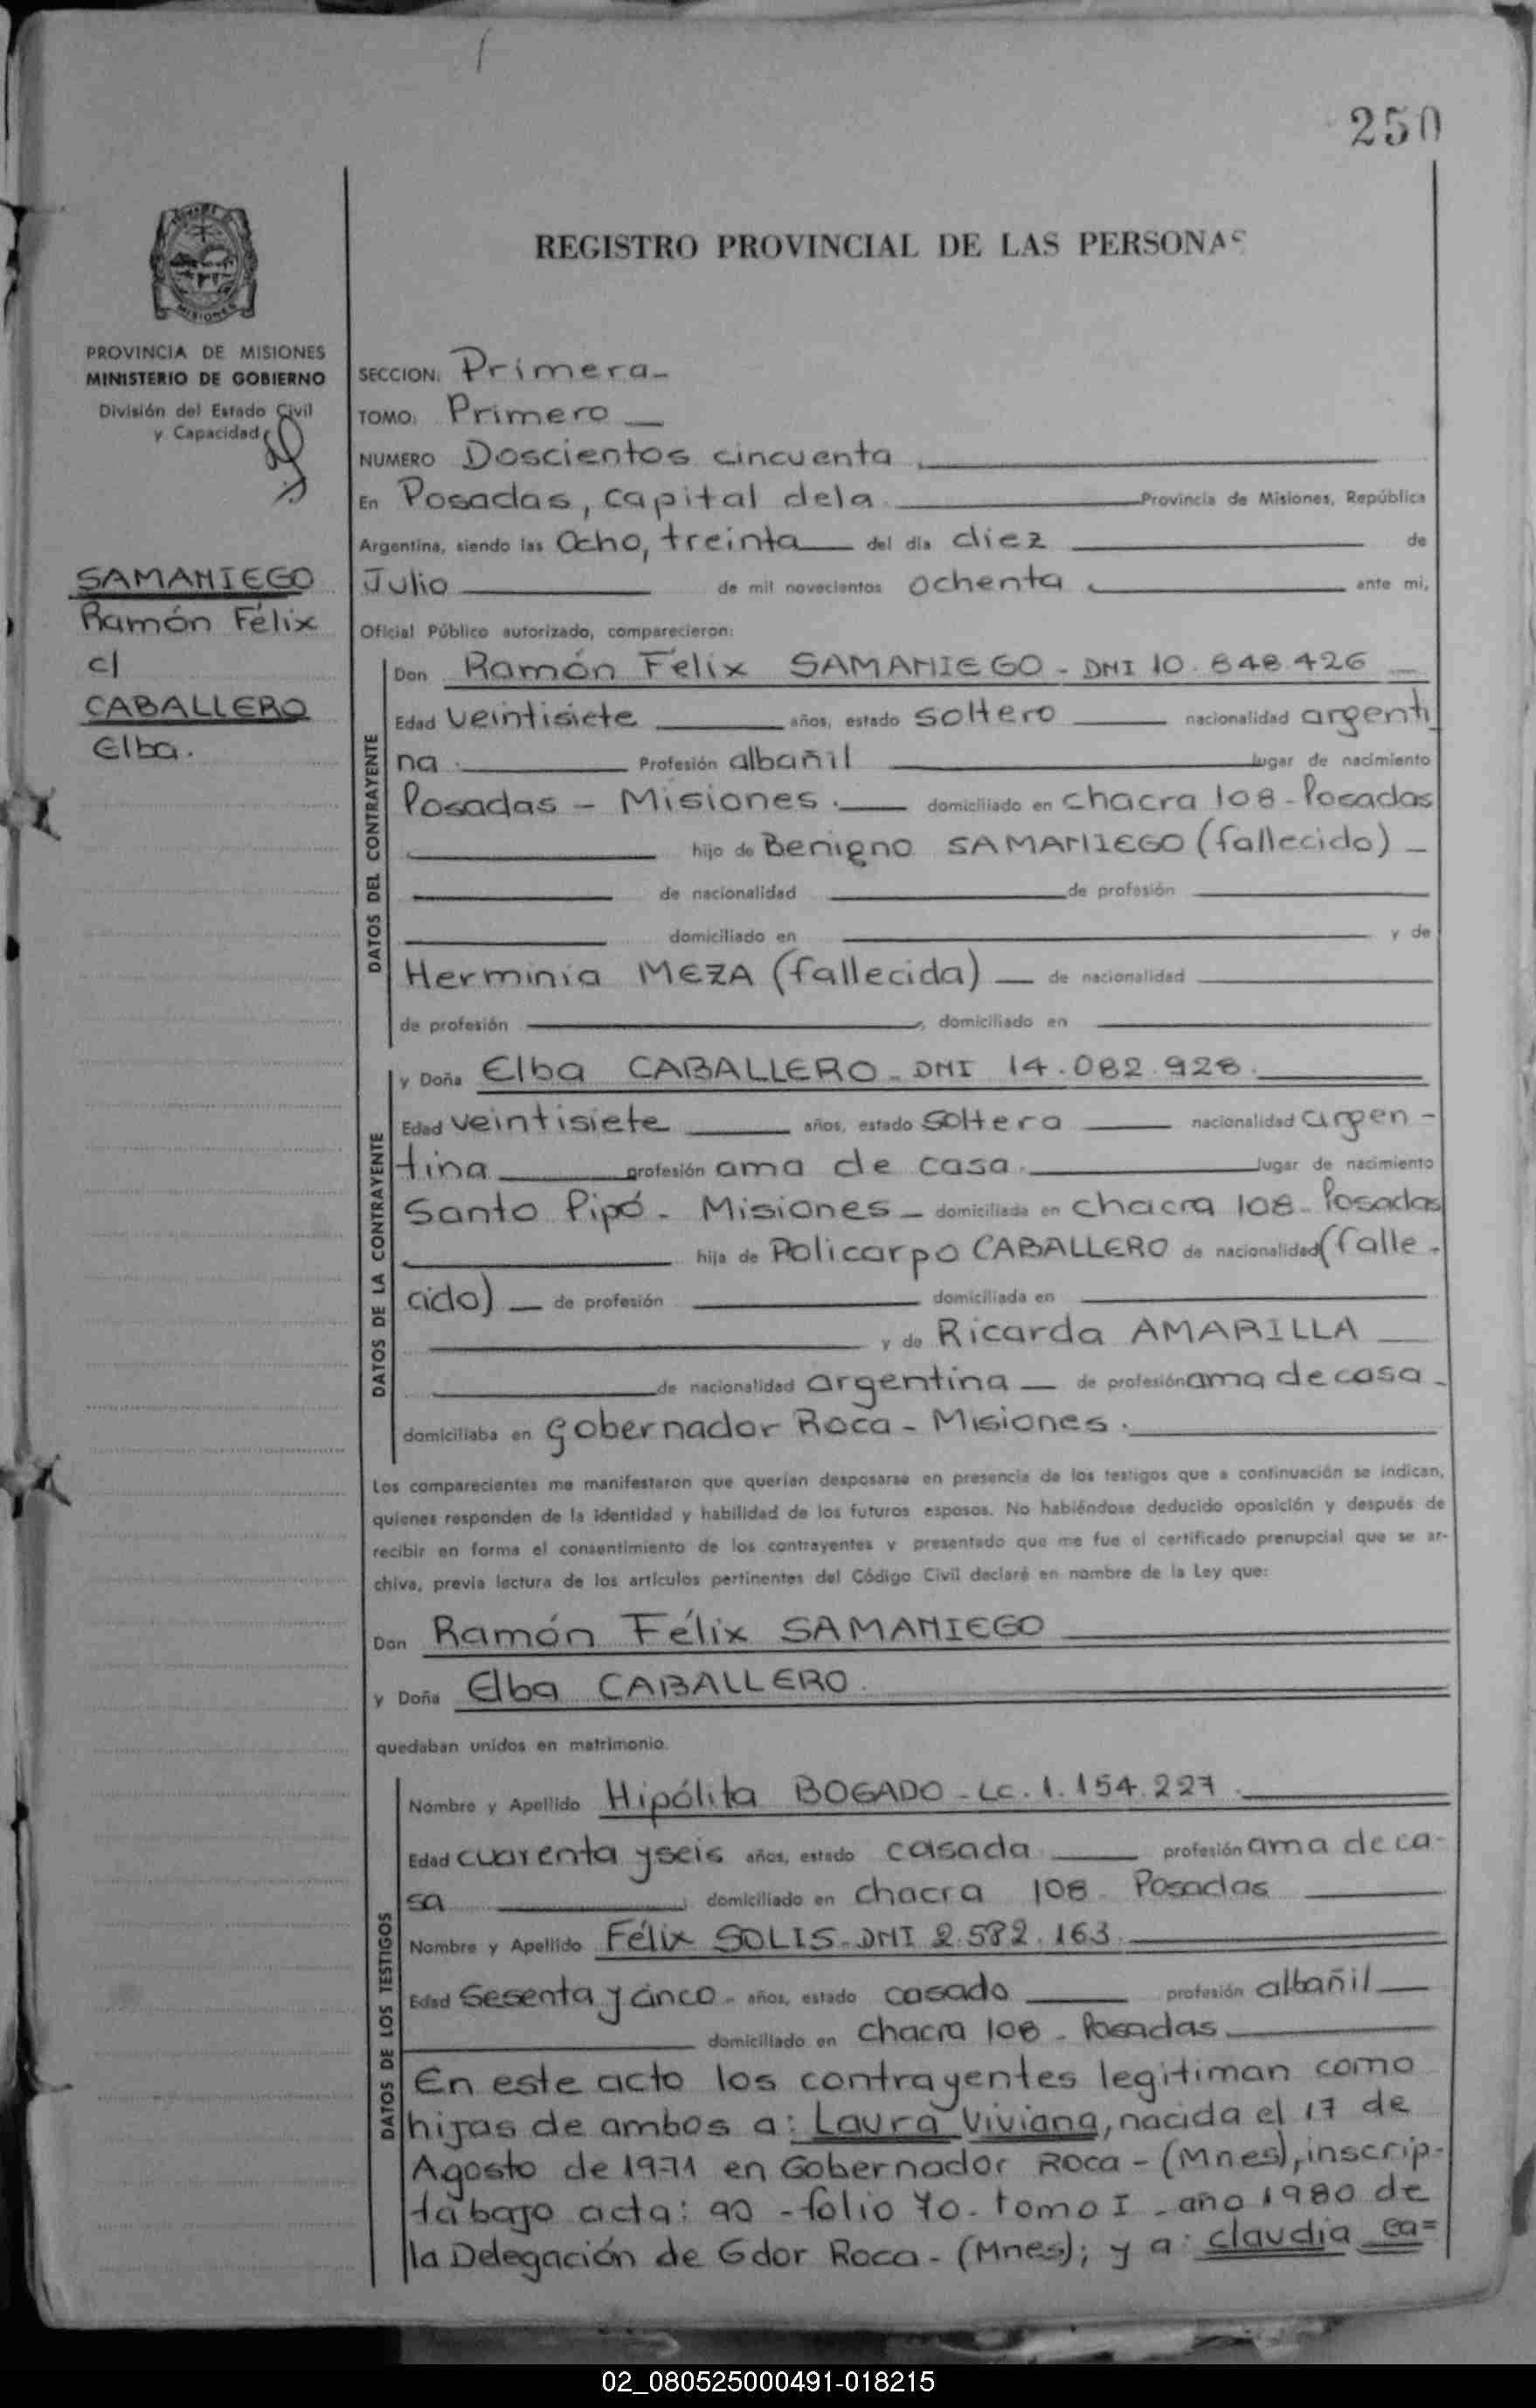 250
REGISTRO PROVINCIAL DE LAS PERSONAS
MISIONES
PROVINCIA DE MISIONES
MINISTERIO DE GOBIERNO
División del Estado Civil
y Capacidad
SAMANIEGO
Ramón Félix
c/
CABALLERO
Elba.
SECCION: Primera
TOMO: Primero
NUMERO Doscientos cincuenta
En Posadas, capital dela Provincia de Misiones, República
Argentina, siendo las Ocho, treinta del día diez de
Julio de mil novecientos ochenta ante mi,
Oficial Público autorizado, comparecieron:
DATOS DEL CONTRAYENTE
Don Ramón Félix SAMANIEGO - DNI 10.848.426
Edad veintisiete años, estado soltero nacionalidad argenti
na. Profesión albañil lugar de nacimiento
Posadas - Misiones. domiciliado en chacra 108 - Posadas
hijo de Benigno SAMANIEGO (fallecido)
de nacionalidad de profesión
domiciliado en y de
Herminia MEZA (fallecida) de nacionalidad
de profesión , domiciliado en
DATOS DE LA CONTRAYENTE
y Doña Elba CABALLERO - DNI 14.082.928.
Edad veintisiete años, estado soltera nacionalidad argen-
tina profesión ama de casa. lugar de nacimiento
Santo Pipó - Misiones - domiciliada en chacra 108 - Posadas
hija de Policarpo CABALLERO de nacionalidad (falle-
cido) de profesión domiciliada en
y de Ricarda AMARILLA
de nacionalidad argentina de profesión ama de casa -
domiciliaba en Gobernador Roca - Misiones.
Los comparecientes me manifestaron que querían desposarse en presencia de los testigos que a continuación se indican,
quienes responden de la identidad y habilidad de los futuros esposos. No habiéndose deducido oposición y después de
recibir en forma el consentimiento de los contrayentes y presentado que me fue el certificado prenupcial que se ar-
chiva, previa lectura de los artículos pertinentes del Código Civil declaré en nombre de la Ley que:
Don Ramón Félix SAMANIEGO
y Doña Elba CABALLERO.
quedaban unidos en matrimonio.
DATOS DE LOS TESTIGOS
Nombre y Apellido Hipólita BOGADO - LC. 1.154.227.
Edad cuarenta y seis años, estado casada profesión ama de ca-
sa domiciliado en chacra 108 - Posadas
Nombre y Apellido Félix SOLIS - DNI 2.582.163.
Edad Sesenta y cinco - años, estado casado profesión albañil
domiciliado en chacra 108 - Posadas.
En este acto los contrayentes legitiman como
hijas de ambos a: Laura Viviana, nacida el 17 de
Agosto de 1971 en Gobernador Roca - (Mnes), inscrip-
ta bajo acta: 90 - folio 70 - tomo I - año 1980 de
la Delegación de Gdor Roca - (Mnes); y a: claudia Ca=
02_080525000491-018215